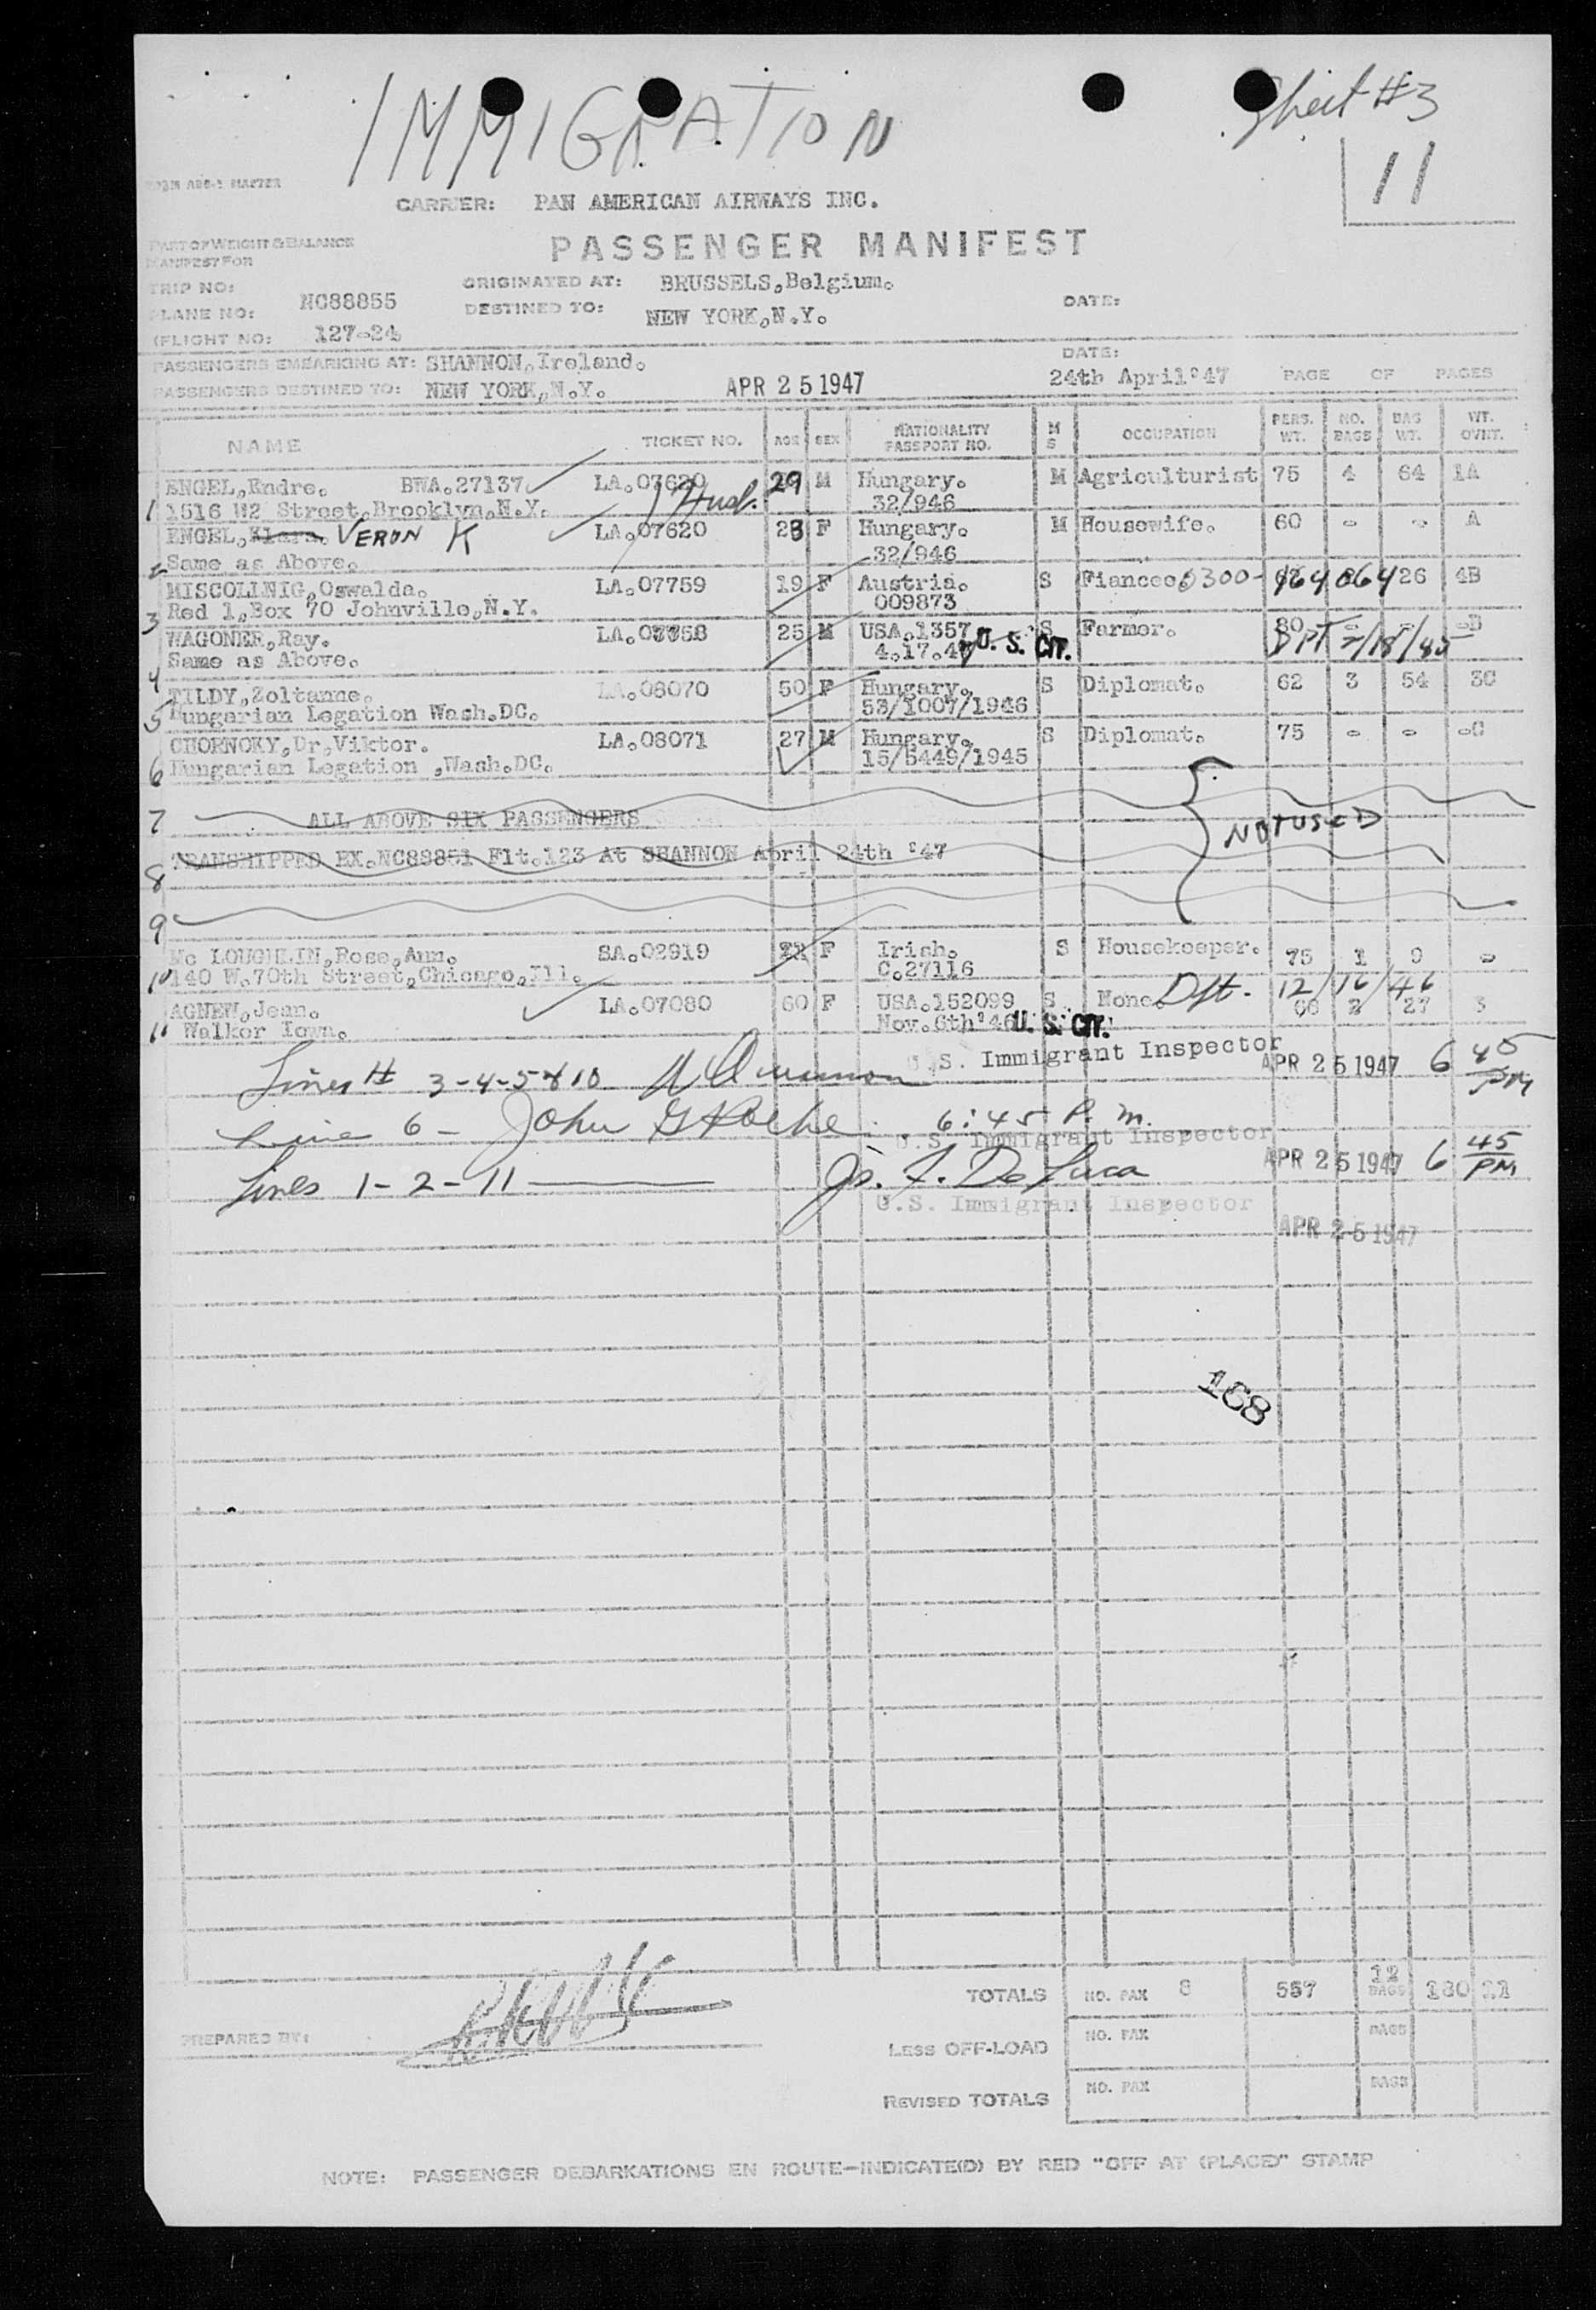 IMMIGRATION
Sheet #3
11
CARRIER: PAN AMERICAN AIRWAYS INC.
PART OF WEIGHT & BALANCE
MANIFEST FOR
PASSENGER MANIFEST
TRIP NO: ORIGINATED AT: BRUSSELS,Belgium.
PLANE NO: NC88855 DESTINED TO: NEW YORK,N.Y. DATE:
(FLIGHT NO: 127-24
PASSENGERS EMBARKING AT: SHANNON,Ireland. DATE:
PASSENGERS DESTINED TO: NEW YORK,N.Y. APR 25 1947 24th April'47 PAGE OF PAGES
NAME TICKET NO. AGE SEX NATIONALITY PASSPORT NO. M S OCCUPATION PERS. WT. NO. BAGS BAG WT. WT. OVNT.
ENGEL,Endre. BWA.27137 LA.07620 29 M Hungary. M Agriculturist 75 4 64 1A
1 1516 W2 Street,Brooklyn,N.Y. Husb. 32/946
ENGEL,Klara. VERON K LA.07620 28 F Hungary. M Housewife. 60 - - A
2 Same as Above. 32/946
MISCOLINIG,Oswalda. LA.07759 19 F Austria. S Fiancee. 0300- 26 4B
3 Red 1,Box 70 Johnville,N.Y. 009873
WAGONER,Ray. LA.07758 25 M USA.1357 S Farmer. 80 - - -B
4 Same as Above. U. S. CIT.
TILDY,Zoltanne. LA.08070 50 F Hungary. S Diplomat. 62 3 54 3C
5 Hungarian Legation Wash.DC. 53/1007/1946
CHORNOKY,Dr,Viktor. LA.08071 27 M Hungary. S Diplomat. 75 - - -C
6 Hungarian Legation ,Wash.DC. 15/5449/1945
7 ALL ABOVE SIX PASSENGERS
NOT USED
8 TRANSHIPPED EX.NC88851 Flt.123 At SHANNON April 24th '47
9
Mc LOUGHLIN,Rose,Ann. SA.02919 F Irish. S Housekeeper. 75 1 9 -
10 140 W.70th Street,Chicago,Ill. C.27116
AGNEW,Jean. LA.07080 60 F USA.152099 S None. Dft. 12/16/46 2 27 3
11 Walker Iowa. Nov.6th'46 U. S. CIT.
Lines # 3-4-5 & 10 U.S. Immigrant Inspector APR 25 1947 6 45 PM
Line 6 - John G Roche 6:45 P.m.
U.S. Immigrant Inspector APR 25 1947 6 45 PM
Lines 1-2-11 Js. F. DeLuca
U.S. Immigrant Inspector
APR 25 1947
168
TOTALS NO. PAX 8 557 12 BAGS 180 11
PREPARED BY: NO. PAX BAGS
LESS OFF-LOAD
REVISED TOTALS NO. PAX BAGS
NOTE: PASSENGER DEBARKATIONS EN ROUTE—INDICATE(D) BY RED "OFF AT (PLACE)" STAMP